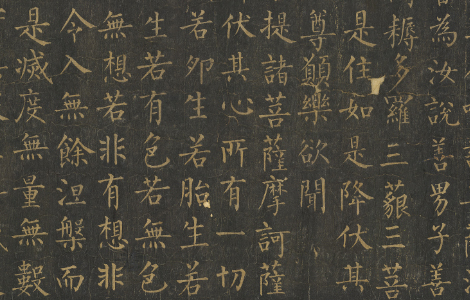 為汝說善男子善
耨多羅三藐三菩
是住如是降伏其
尊願樂欲聞
提諸菩薩摩訶薩
伏其心所有一切
若卵生若胎生若
生若有色若無色
無想若非有想非
令入無餘涅槃而
是滅度無量無數